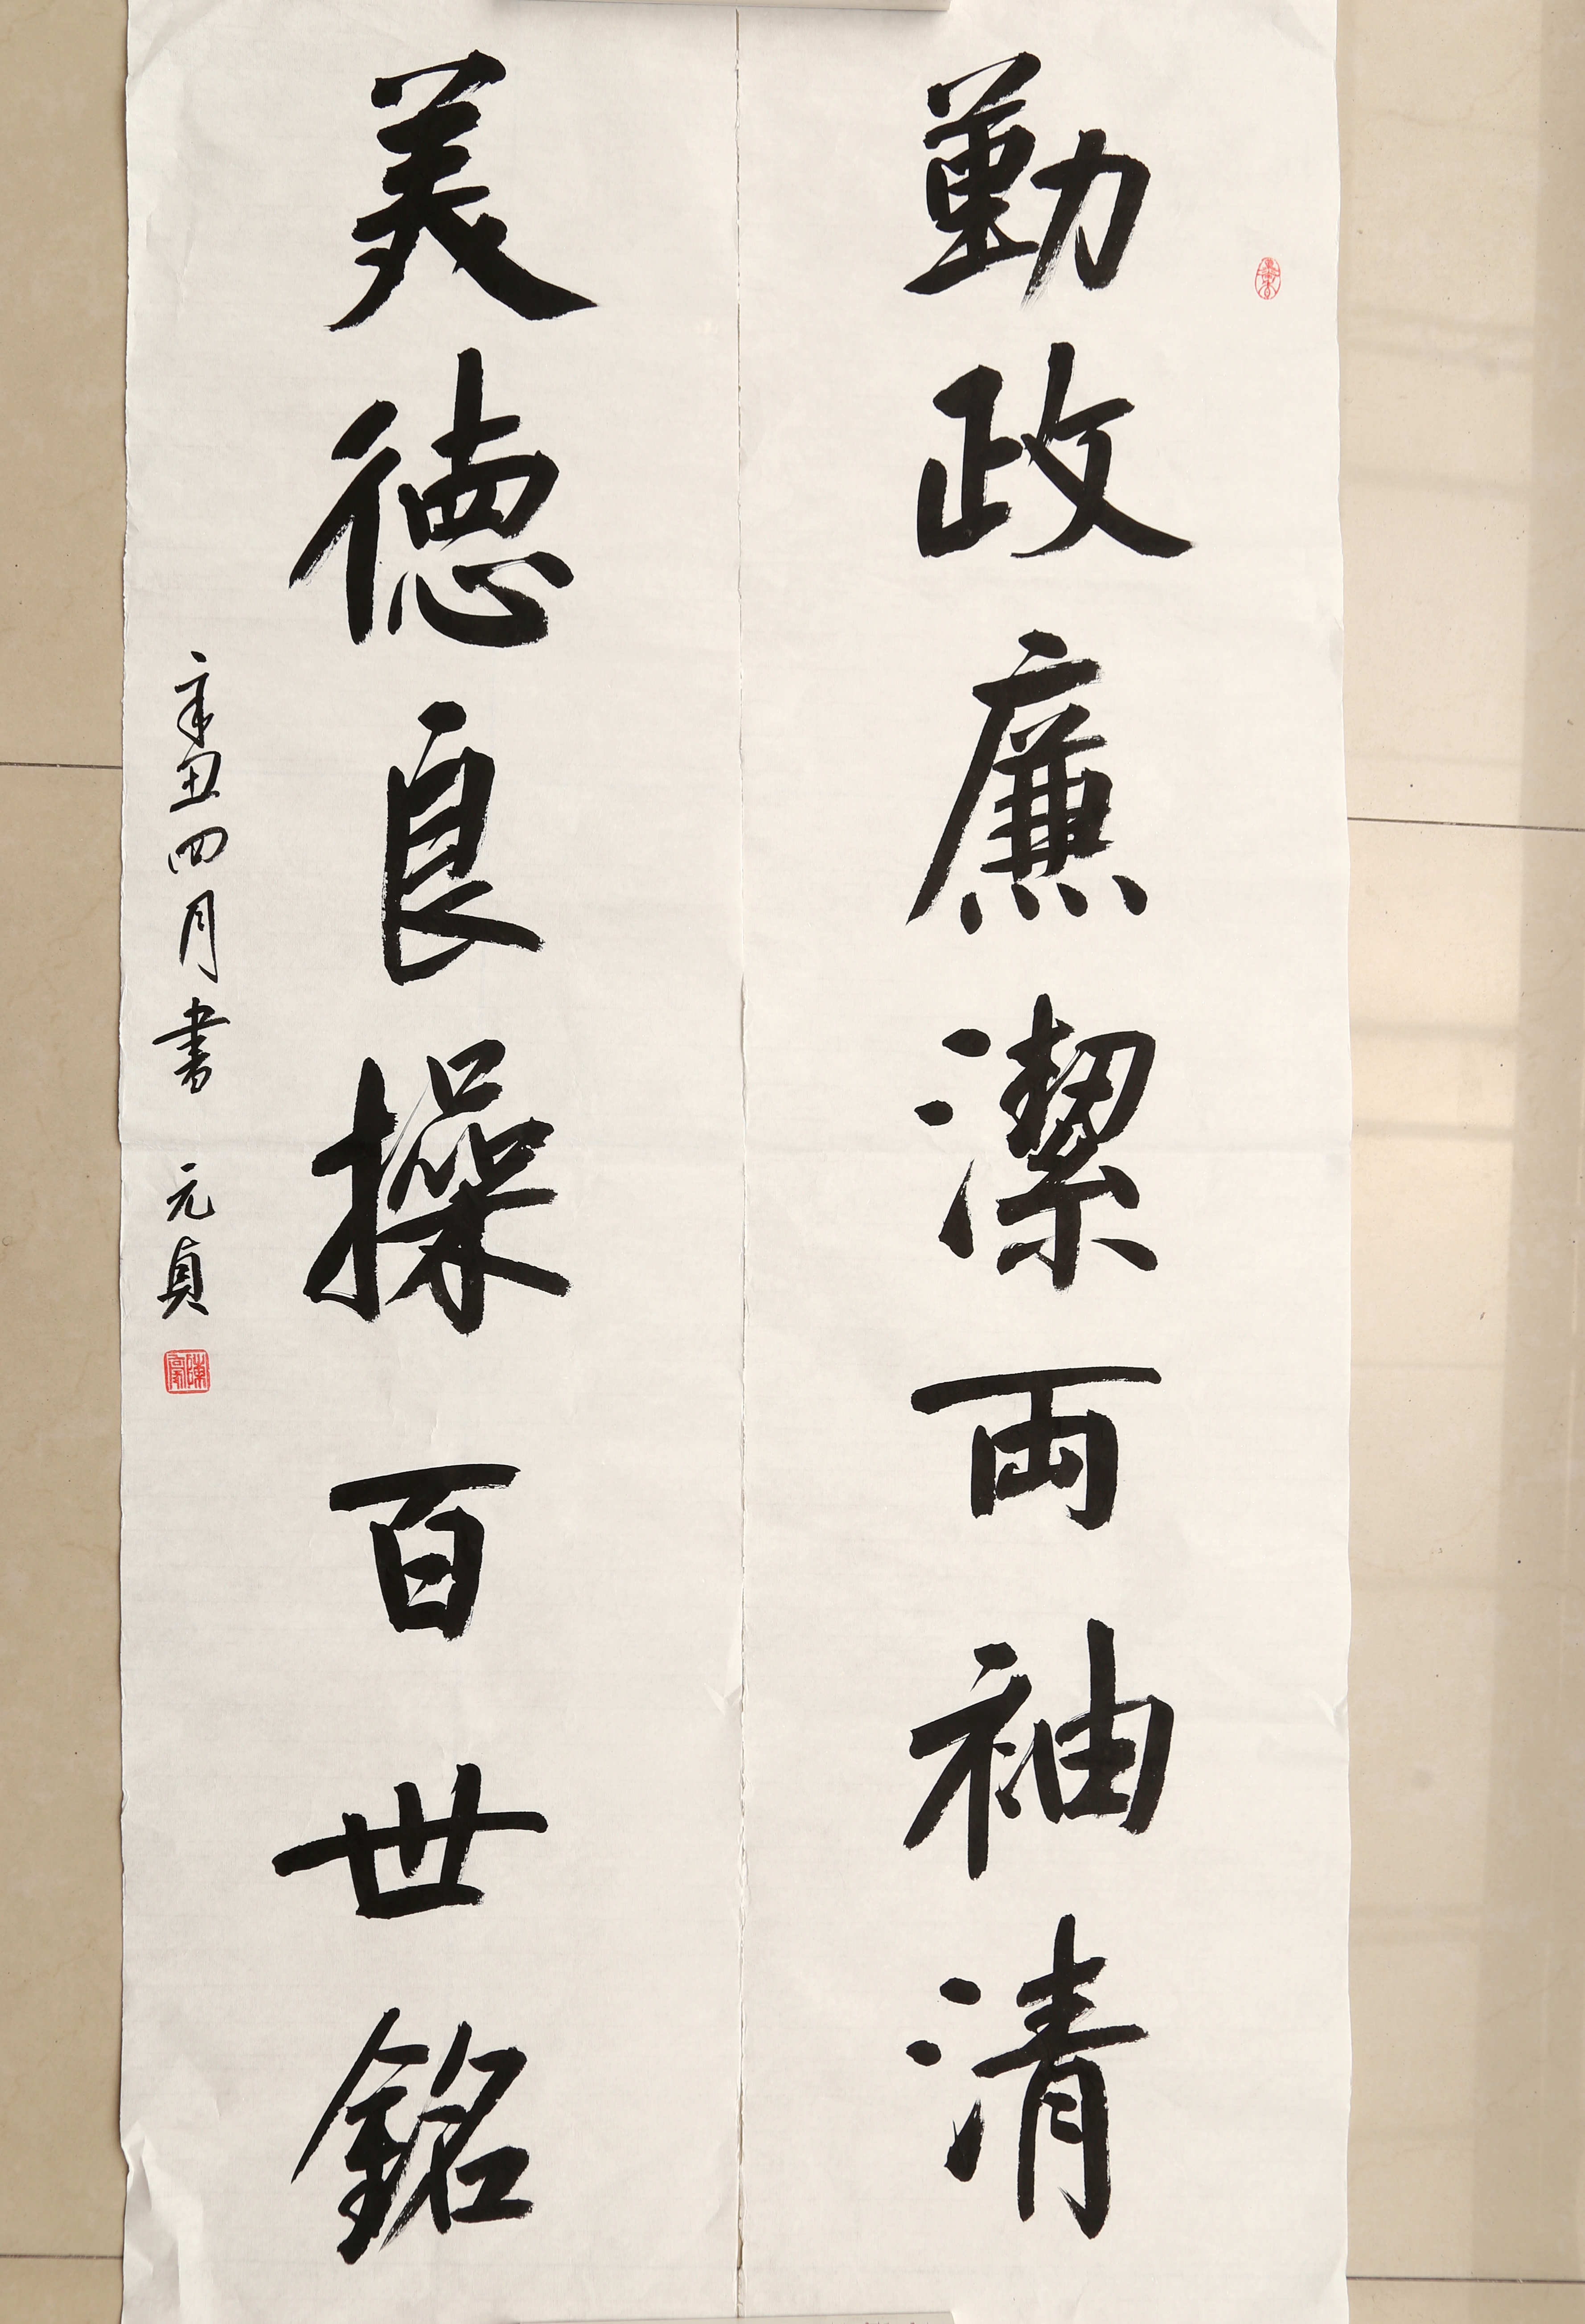 勤政廉潔両袖清
美德良操百世銘
辛丑四月書 元貞